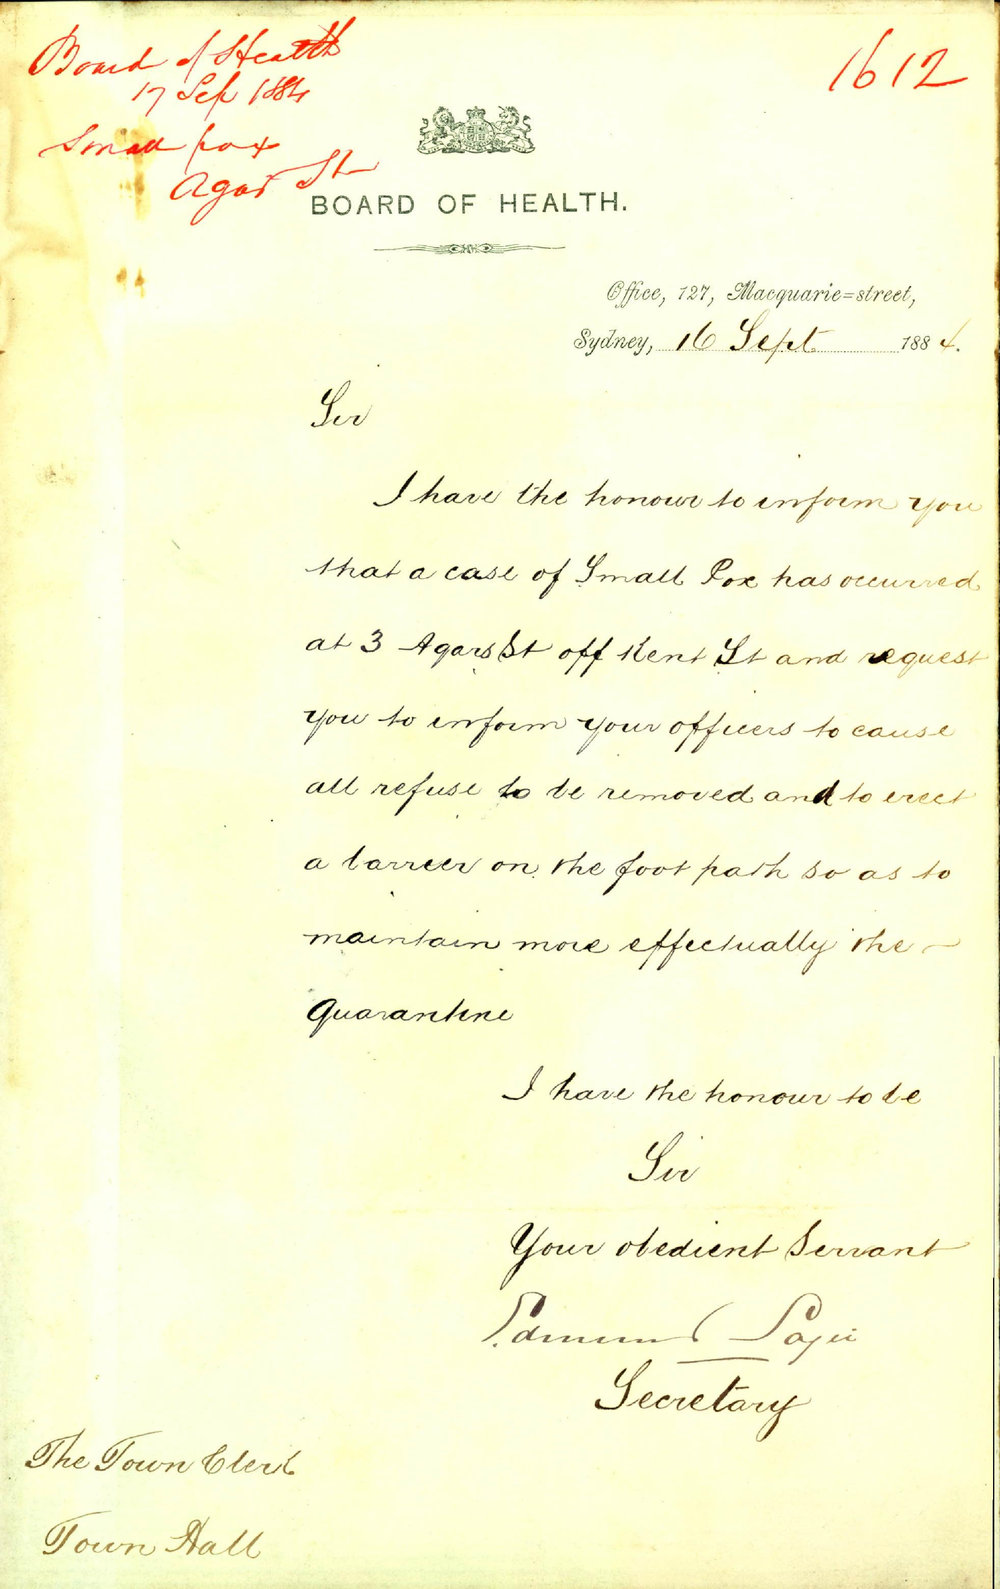 Board of Health
17 Sep 1884
Small pox
Agar St
1612
BOARD OF HEALTH.
Office, 127, Macquarie=street,
Sydney, 16 Sept 1884.
Sir
I have the honour to inform you
that a case of Small Pox has occurred
at 3 Agars St off Kent St and request
you to inform your officers to cause
all refuse to be removed and to erect
a barrier on the foot path so as to
maintain more effectually the
Quarantine
I have the honour to be
Sir
Your obedient Servant
Edmund Sager
Secretary
The Town Clerk
Town Hall